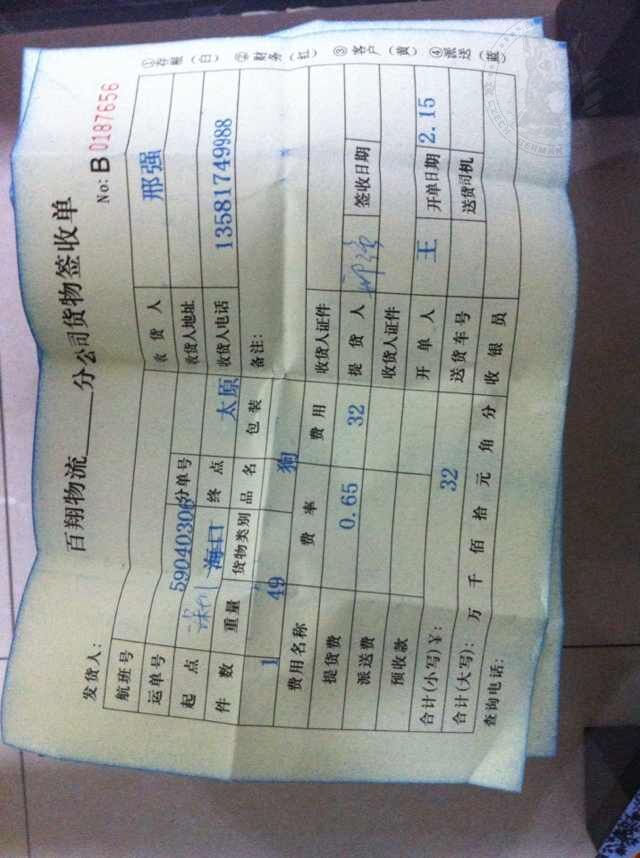 百翔物流____分公司货物签收单
No: B 0187656
发货人:
航班号 收货人 邢强
运单号 59040306 分单号 收货人地址
起点 海口 终点 太原 收货人电话 13581749988
件数 重量 货物类别 品名 包装 备注:
1 49 狗
费用名称 费率 费用 收货人证件
提货费 0.65 32 提货人 签收日期
派送费 收货人证件
预收款 开单人 王 开单日期 2.15
合计(小写)¥: 32 送货车号 送货司机
合计(大写): 万 千 佰 拾 元 角 分 收银员
查询电话:
①存根(白) ②财务(红) ③客户(黄) ④派送(蓝)